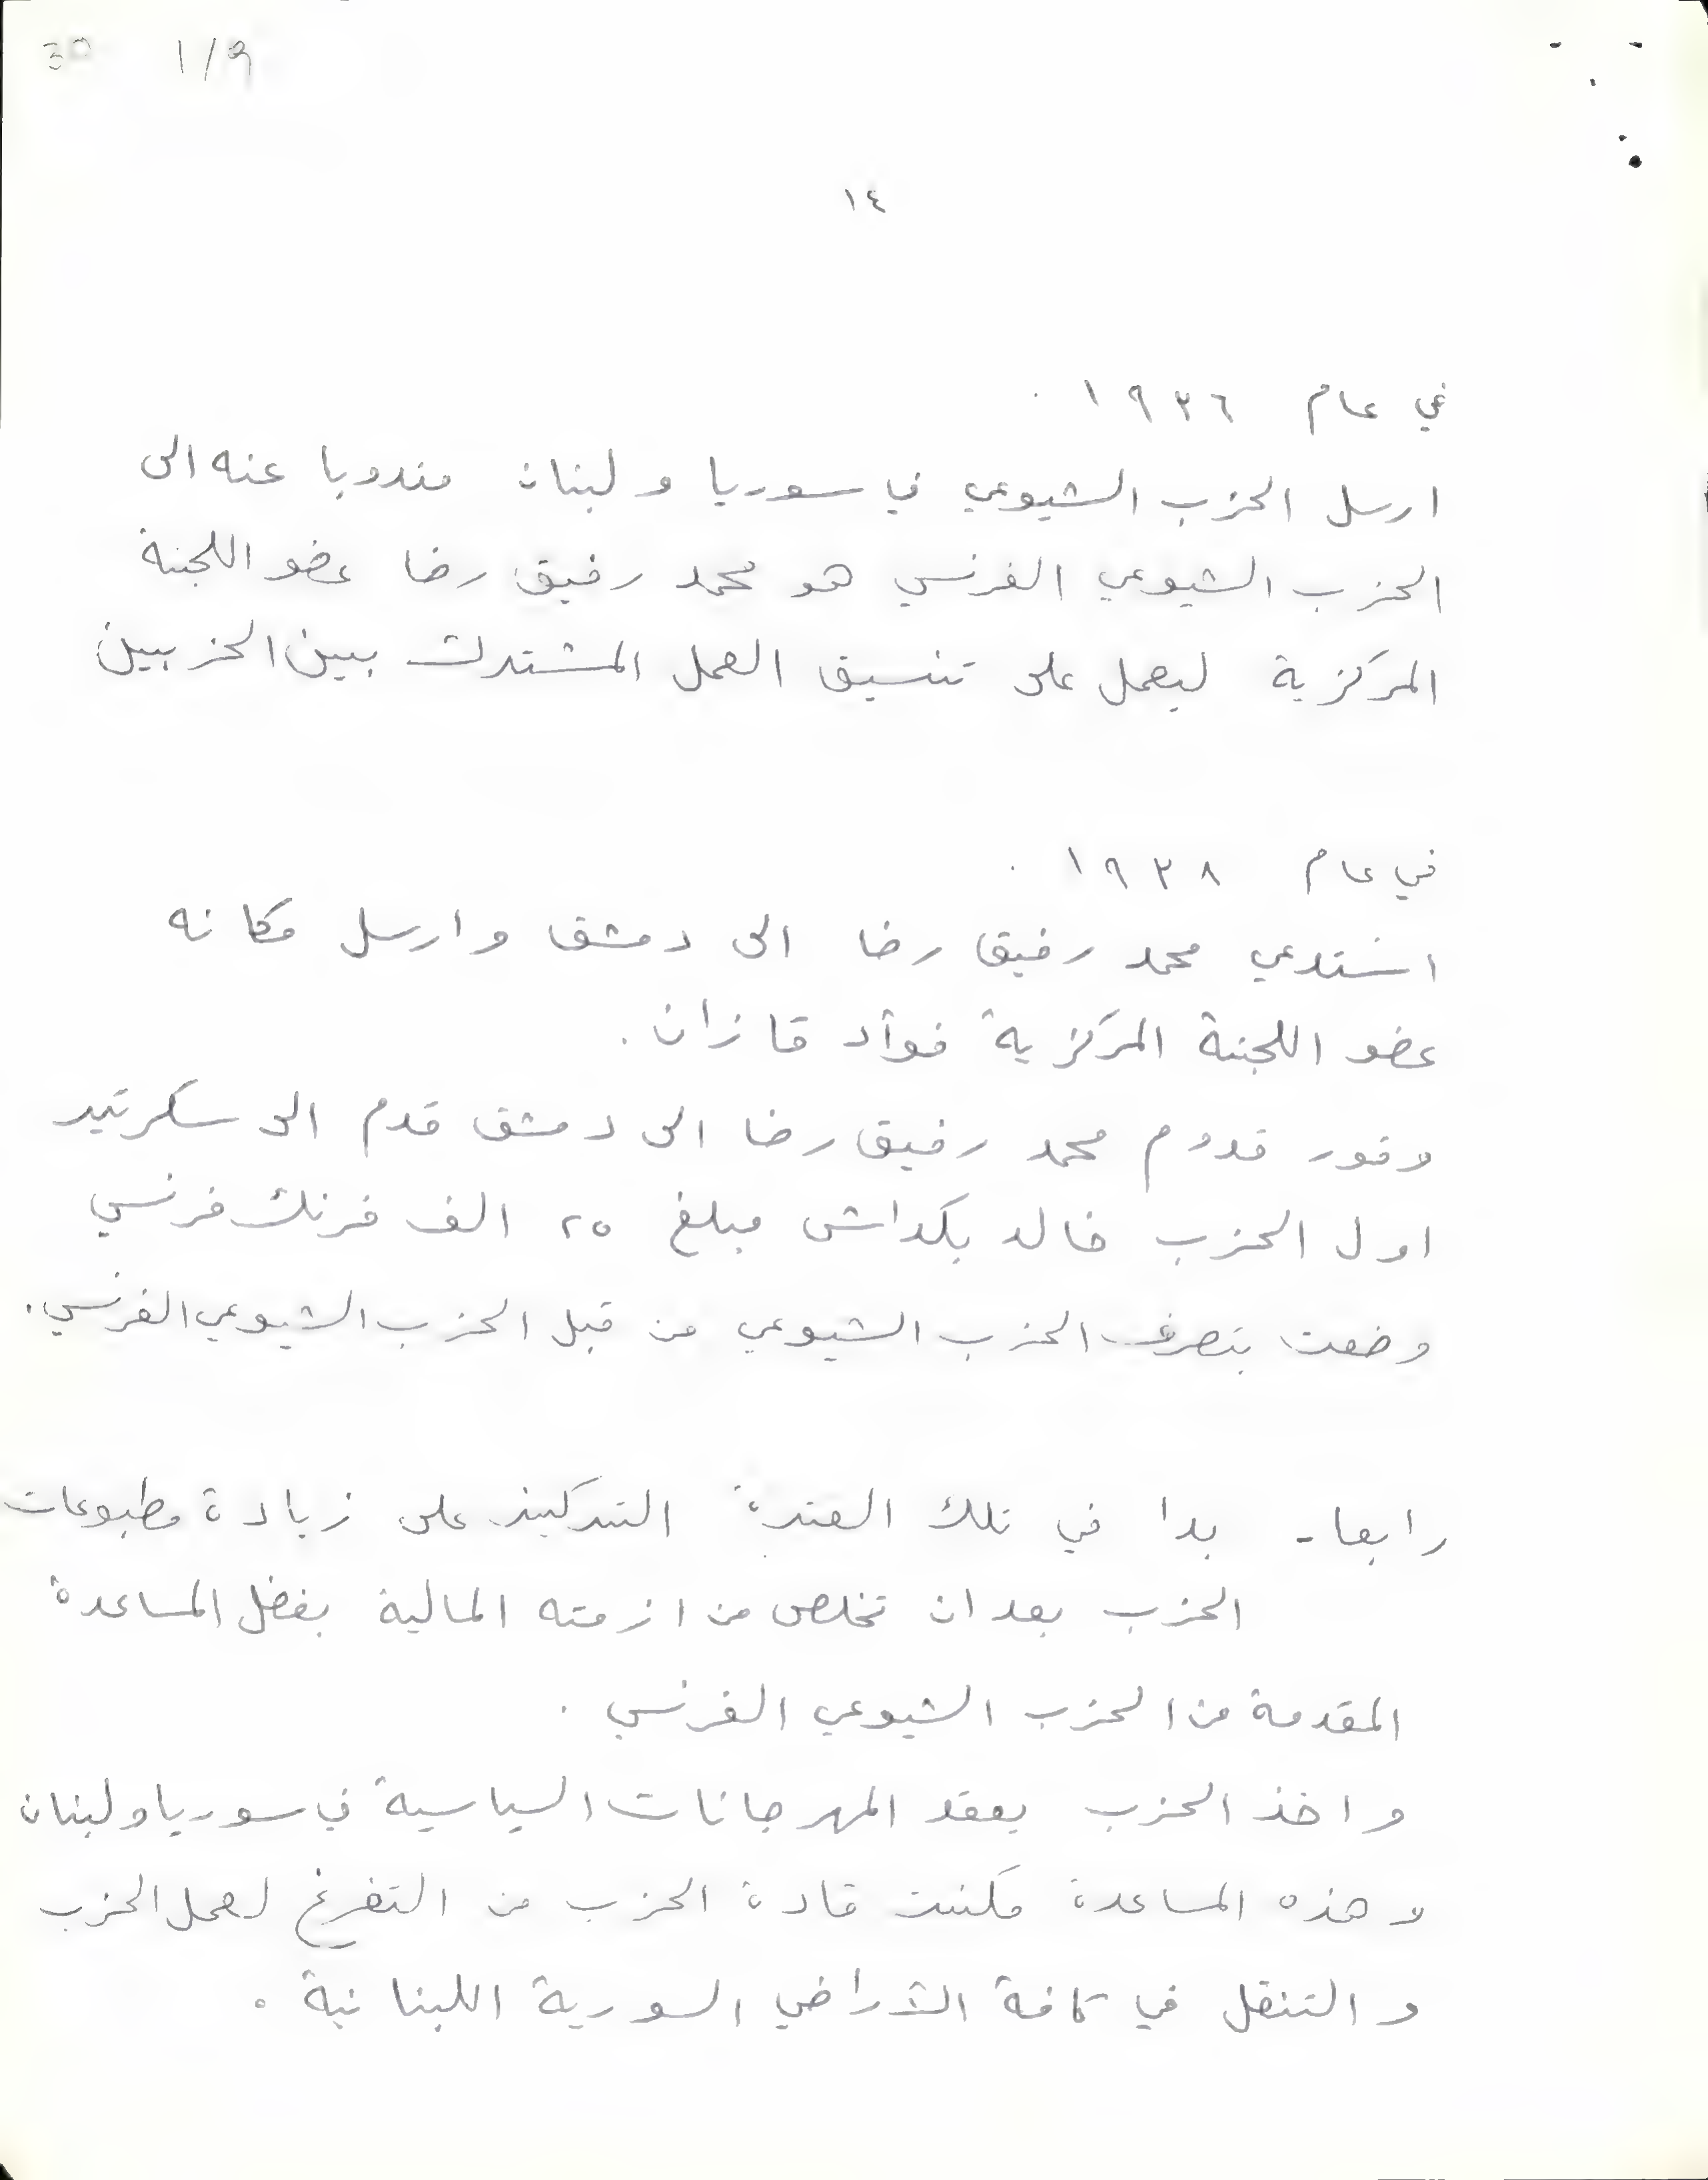 1/9
١٤
في عام ١٩٣٦ .
ارسل الحزب الشيوعي في سوريا و لبنان مندوبا عنه الى
الحزب الشيوعي الفرنسي هو محمد رفيق رضا عضو اللجنة
المركزية ليعمل على تنسيق العمل المشترك بين الحزبين
في عام ١٩٣٨ .
استدعي محمد رفيق رضا الى دمشق وارسل مكانه
عضو اللجنة المركزية فوآد قازان .
وفور قدوم محمد رفيق رضا الى دمشق قدم الى سكرتير
اول الحزب خالد بكداش مبلغ ٢٥ الف فرنك فرنسي
وضعت بتصرف الحزب الشيوعي من قبل الحزب الشيوعي الفرنسي .
رابعا - بدا في تلك الفترة التركيز على زيادة مطبوعات
الحزب بعد ان تخلص من ازمته المالية بفضل المساعدة
المقدمة من الحزب الشيوعي الفرنسي .
واخذ الحزب يعقد المهرجانات السياسية في سوريا ولبنان
وهذه المساعدة مكنت قادة الحزب من التفرغ لعمل الحزب
والتنقل في كافة الاراضي السورية اللبنانية .